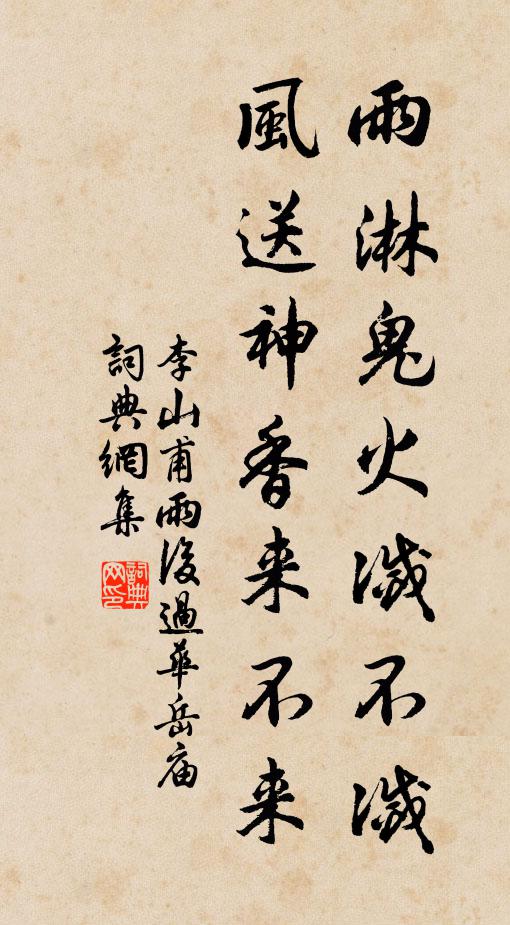 雨淋鬼火滅不滅
風送神香来不来
李山甫雨後過華岳庙
詞典網集
詞典网印